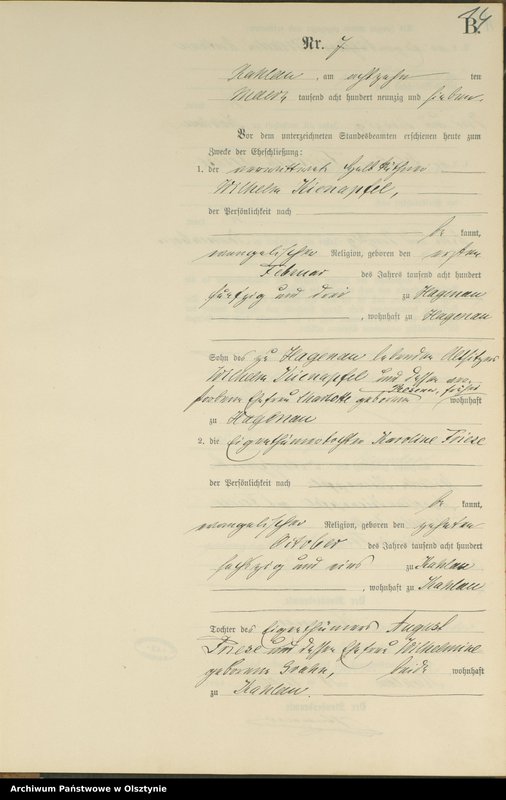 14
B.
Nr. 7
Kahlau, am achtzehn ten
März tausend acht hundert neunzig und sieben.
Vor dem unterzeichneten Standesbeamten erschienen heute zum
Zwecke der Eheschließung:
1. der verwittwete
Wilhelm Kienapfel,
der Persönlichkeit nach
be kannt,
evangelischer Religion, geboren den ersten
Februar des Jahres tausend acht hundert
fünfzig und drei zu Hagenau
, wohnhaft zu Hagenau
Sohn des zu Hagenau lebenden Altsitzers
Wilhelm Kienapfel und dessen ver
storbenen Ehefrau Charlotte geborene wohnhaft
zu Hagenau
2. die Eigenthümertochter Karoline Friese
der Persönlichkeit nach
be kannt,
evangelischer Religion, geboren den zehnten
October des Jahres tausend acht hundert
sechszig und eins zu Kahlau
, wohnhaft zu Kahlau
Tochter des Eigenthümers August
Friese und dessen Ehefrau Wilhelmine
geborene, beide wohnhaft
zu Kahlau.
Archiwum Państwowe w Olsztynie